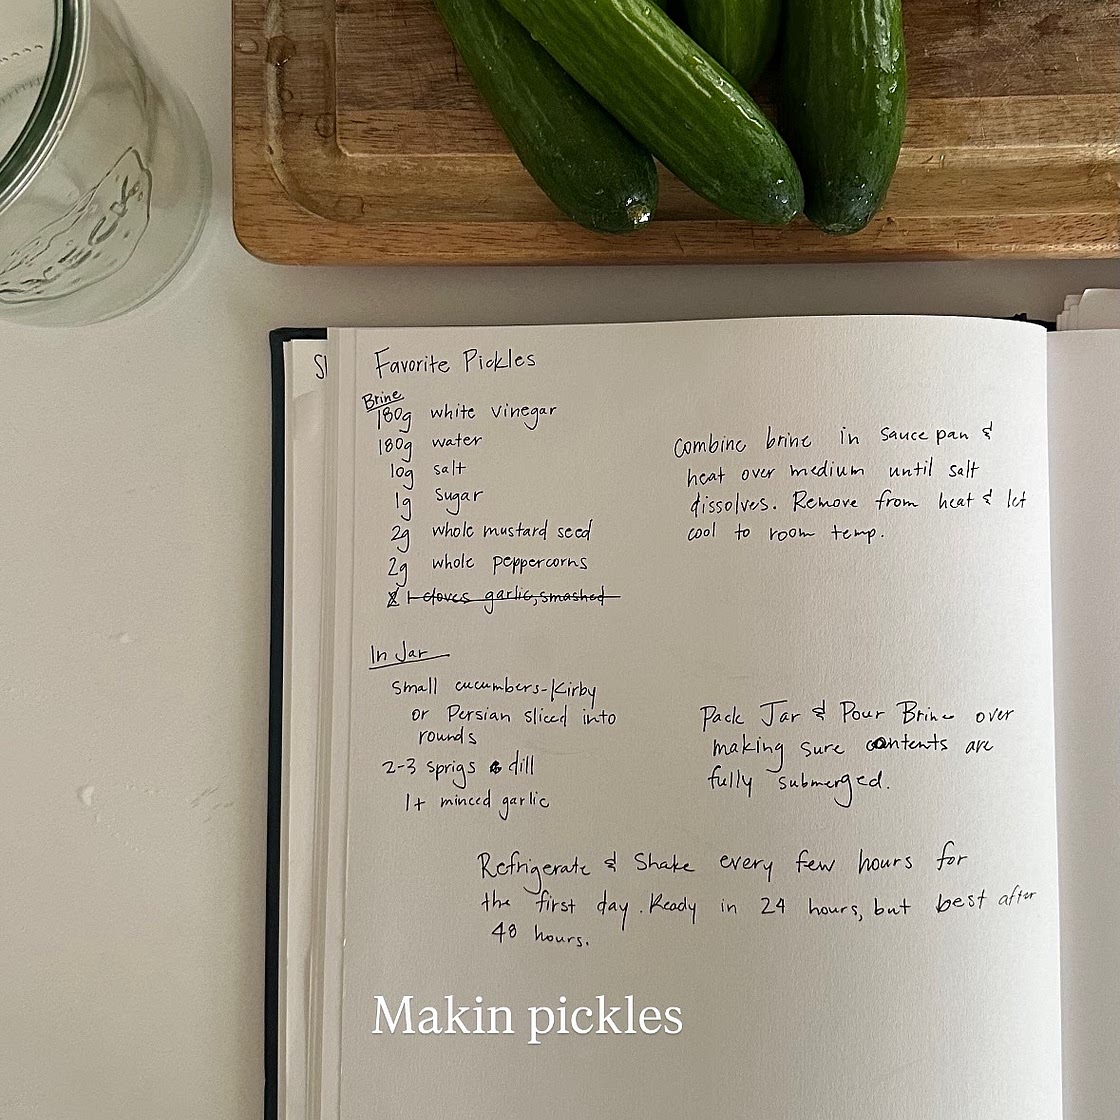 Sl
Favorite Pickles
Brine
180g white vinegar
180g water
10g salt
1g sugar
2g whole mustard seed
2g whole peppercorns
cloves garlic, smashed
Combine brine in sauce pan &
heat over medium until salt
dissolves. Remove from heat & let
cool to room temp.
In Jar
small cucumbers-Kirby
or Persian sliced into
rounds
2-3 sprigs dill
1+ minced garlic
Pack Jar & Pour Brine over
making sure contents are
fully submerged.
Refrigerate & Shake every few hours for
the first day. Ready in 24 hours, but best after
48 hours.
Makin pickles